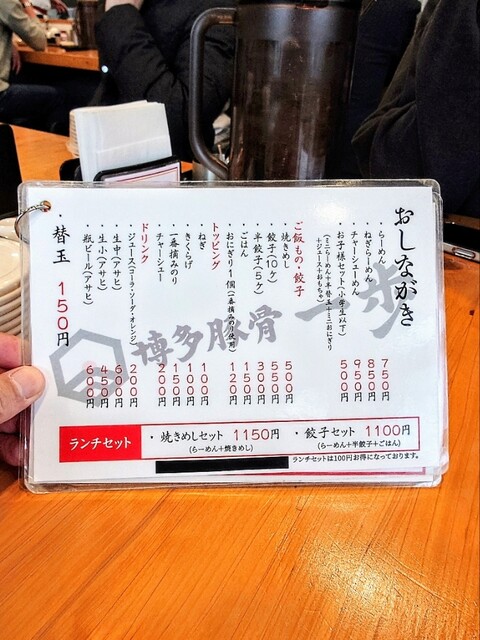 おしながき
・らーめん 750円
・ねぎらーめん 850円
・チャーシューめん 950円
・お子様セット(小学生以下) 500円
(ミニらーめん+半替玉+ミニおにぎり
+ジュース+おもちゃ)
ご飯もの・餃子
・焼きめし 500円
・餃子(10ケ) 550円
・半餃子(5ケ) 300円
・ごはん 150円
・おにぎり1個(一番摘みのり使用) 120円
トッピング
・ねぎ 100円
・きくらげ 100円
・一番摘みのり 150円
・チャーシュー 200円
ドリンク
・ジュース(コーラ・ソーダ・オレンジ) 200円
・生中(アサヒ) 600円
・生小(アサヒ) 450円
・瓶ビール(アサヒ) 600円
・替玉 150円
博多豚骨 一歩
ランチセット
・焼きめしセット 1150円
(らーめん+焼きめし)
・餃子セット 1100円
(らーめん+半餃子+ごはん)
ランチセットは100円お得になっております。